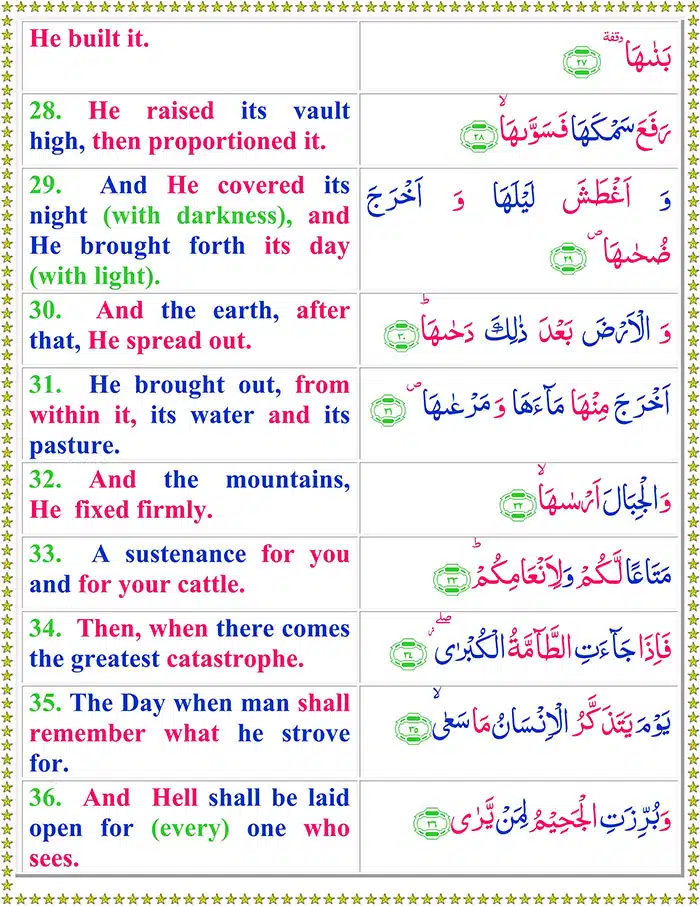 He built it.
بَنٰىهَا وقفة ٢٧
28. He raised its vault
high, then proportioned it.
رَفَعَ سَمْكَهَا فَسَوّٰىهَا ۙ ٢٨
29. And He covered its
night (with darkness), and
He brought forth its day
(with light).
وَ اَغْطَشَ لَيْلَهَا وَ اَخْرَجَ
ضُحٰىهَا ۪ ٢٩
30. And the earth, after
that, He spread out.
وَ الْاَرْضَ بَعْدَ ذٰلِكَ دَحٰىهَا ؕ ٣٠
31. He brought out, from
within it, its water and its
pasture.
اَخْرَجَ مِنْهَا مَآءَهَا وَ مَرْعٰىهَا ۪ ٣١
32. And the mountains,
He fixed firmly.
وَالْجِبَالَ اَرْسٰىهَا ۙ ٣٢
33. A sustenance for you
and for your cattle.
مَتَاعًا لَّكُمْ وَلِاَنْعَامِكُمْ ؕ ٣٣
34. Then, when there comes
the greatest catastrophe.
فَاِذَا جَآءَتِ الطَّآمَّةُ الْكُبْرٰى ۖ ٣٤
35. The Day when man shall
remember what he strove
for.
يَوْمَ يَتَذَكَّرُ الْاِنْسَانُ مَا سَعٰى ۙ ٣٥
36. And Hell shall be laid
open for (every) one who
sees.
وَبُرِّزَتِ الْجَحِيْمُ لِمَنْ يَّرٰى ٣٦